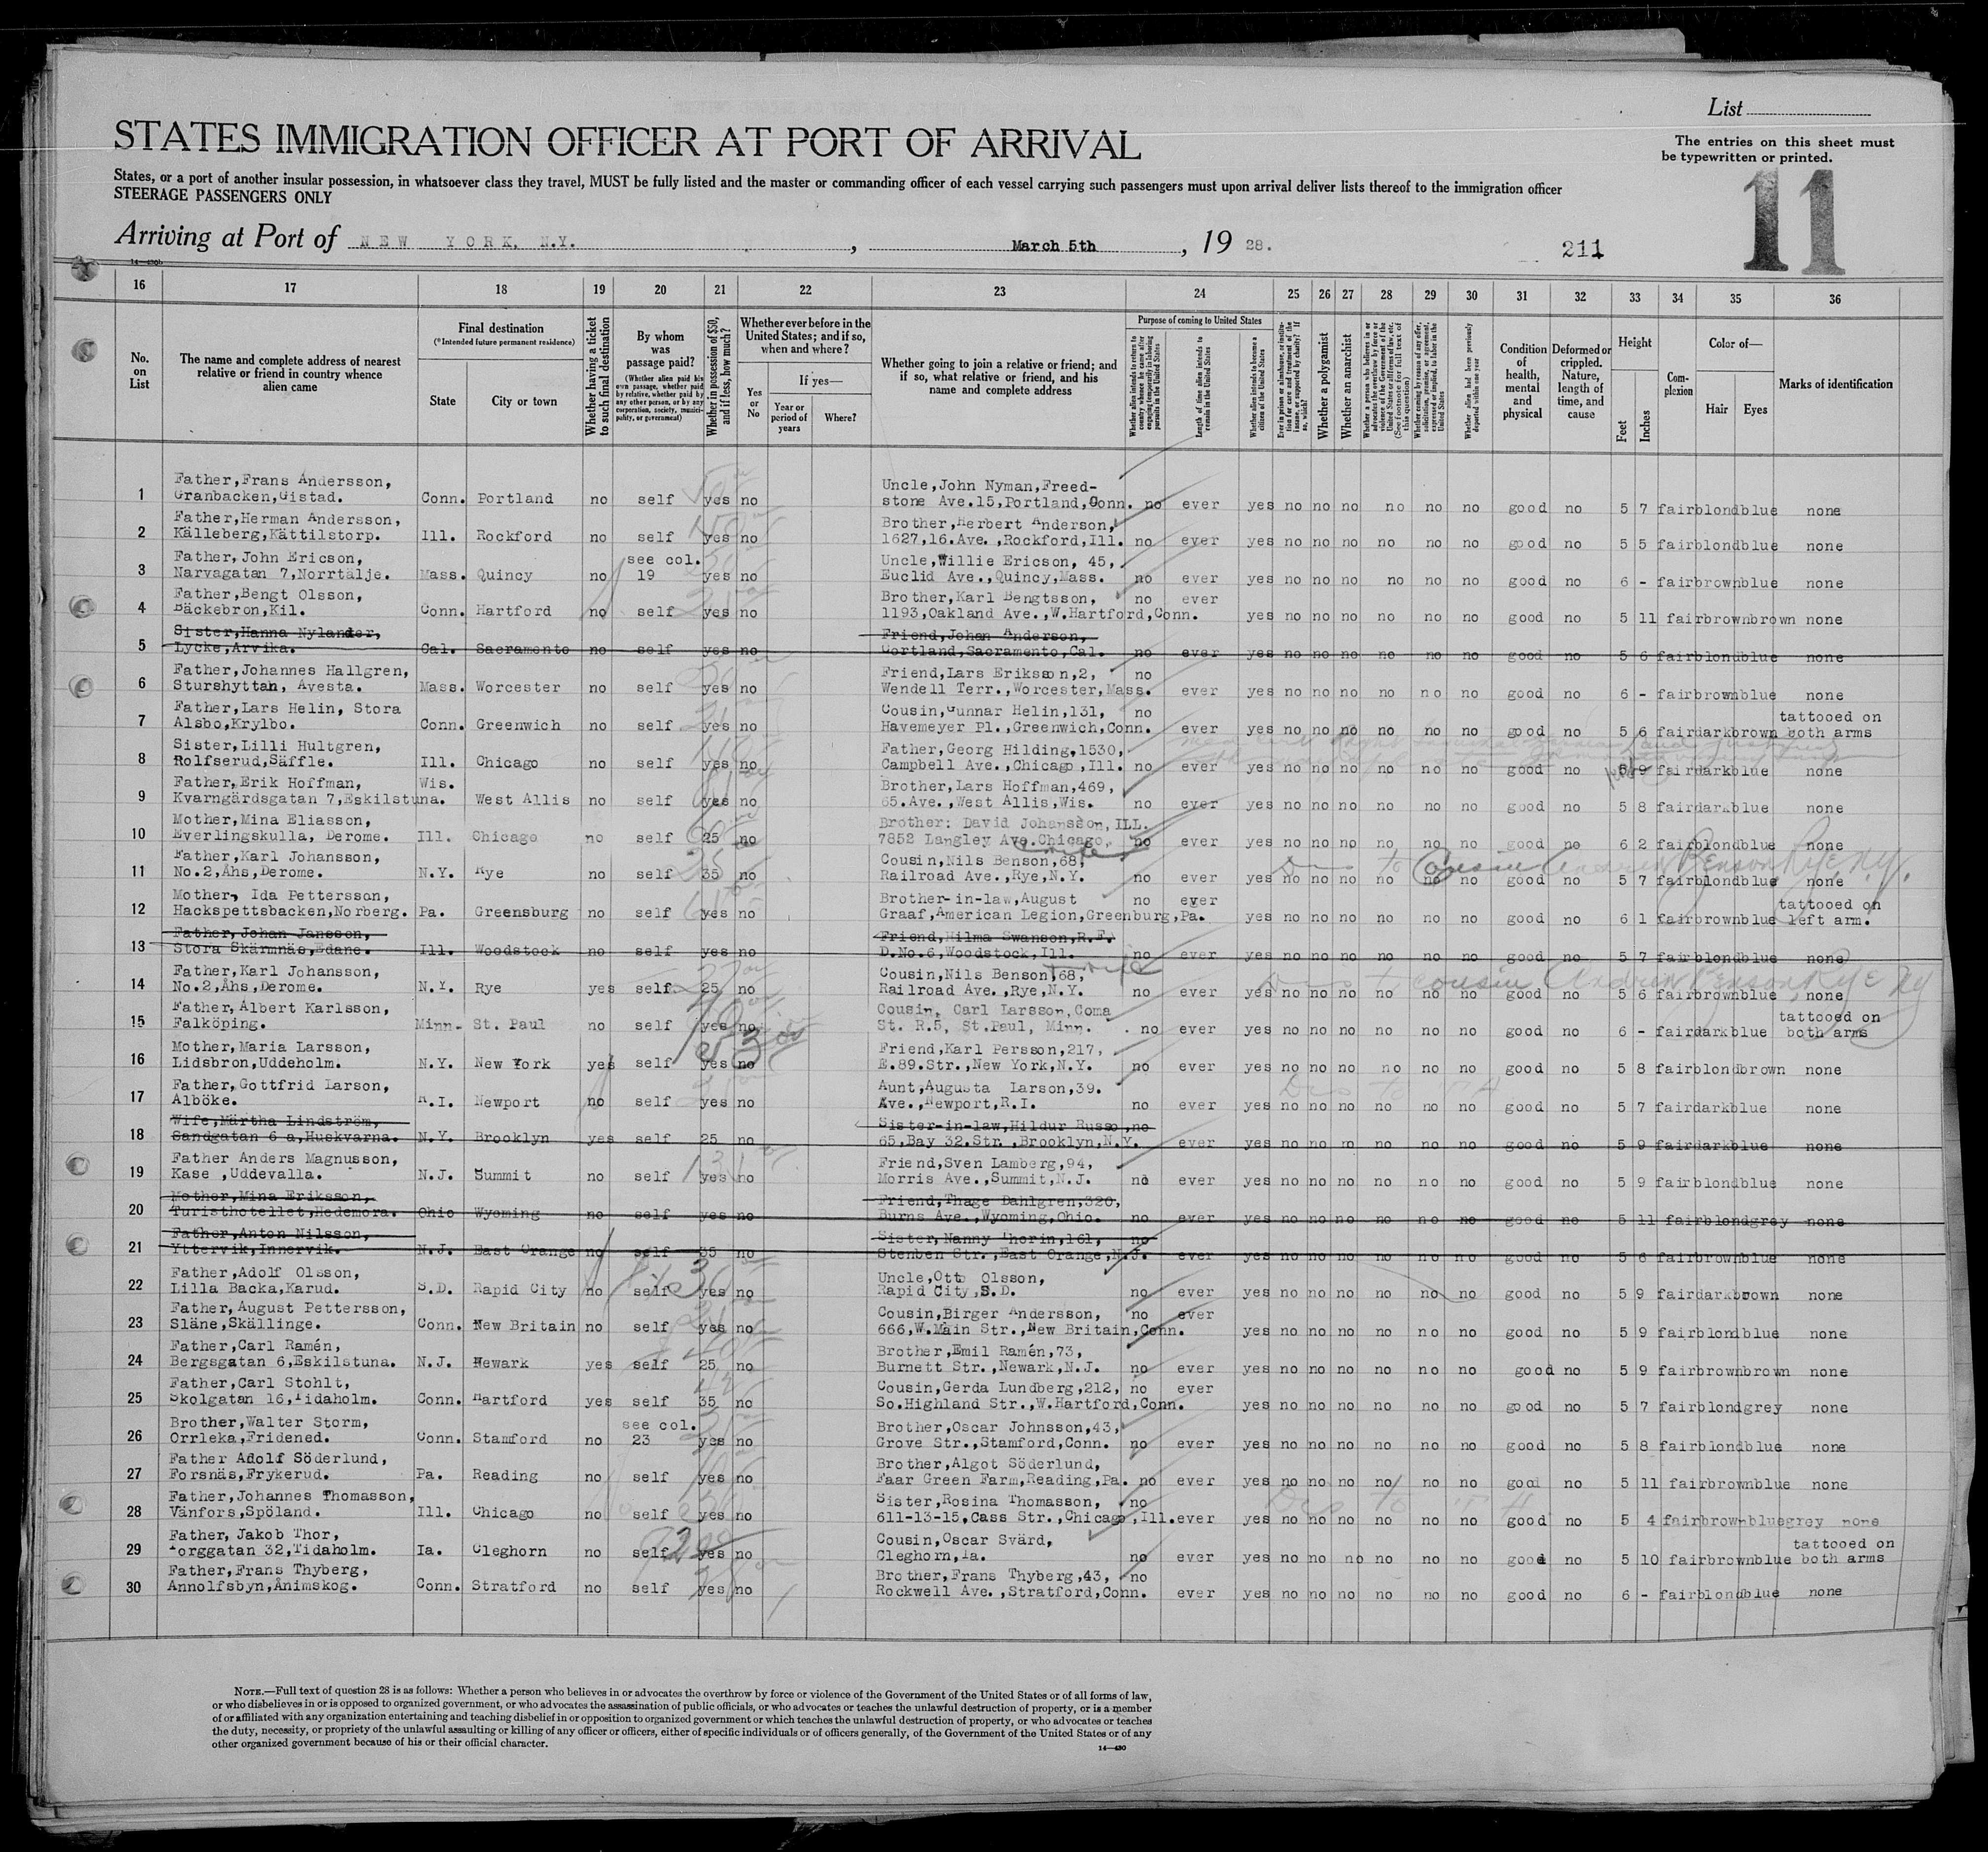 List
STATES IMMIGRATION OFFICER AT PORT OF ARRIVAL
The entries on this sheet must
be typewritten or printed.
States, or a port of another insular possession, in whatsoever class they travel, MUST be fully listed and the master or commanding officer of each vessel carrying such passengers must upon arrival deliver lists thereof to the immigration officer
STEERAGE PASSENGERS ONLY
11
Arriving at Port of NEW YORK, N.Y. , March 5th , 19 28.
211
14—430b
16 17 18 19 20 21 22 23 24 25 26 27 28 29 30 31 32 33 34 35 36
No. on List
The name and complete address of nearest relative or friend in country whence alien came
Final destination
(*Intended future permanent residence)
State City or town
Whether having a ticket to such final destination
By whom was passage paid?
(Whether alien paid his own passage, whether paid by relative, whether paid by any other person, or by any corporation, society, municipality, or government)
Whether in possession of $50, and if less, how much?
Whether ever before in the United States; and if so, when and where?
Yes or No
If yes—
Year or period of years
Where?
Whether going to join a relative or friend; and if so, what relative or friend, and his name and complete address
Purpose of coming to United States
Whether alien intends to return to country whence he came after engaging temporarily in laboring pursuits in the United States
Length of time alien intends to remain in the United States
Whether alien intends to become a citizen of the United States
Ever in prison or almshouse, or institution for care and treatment of the insane, or supported by charity? If so, which?
Whether a polygamist
Whether an anarchist
Whether a person who believes in or advocates the overthrow by force or violence of the Government of the United States or all forms of law, etc. (See footnote for full text of this question)
Whether coming by reason of any offer, solicitation, promise, or agreement, expressed or implied, to labor in the United States
Whether alien had been previously deported within one year
Condition of health, mental and physical
Deformed or crippled. Nature, length of time, and cause
Height
Feet Inches
Complexion
Color of—
Hair Eyes
Marks of identification
1 Father,Frans Andersson, Granbacken,Gistad. Conn. Portland no self yes no Uncle,John Nyman,Freed-stone Ave.15,Portland,Conn. no ever yes no no no no no no good no 5 7 fair blond blue none
2 Father,Herman Andersson, Källeberg,Kättilstorp. Ill. Rockford no self yes no Brother,Herbert Anderson, 1627,16.Ave.,Rockford,Ill. no ever yes no no no no no no good no 5 5 fair blond blue none
3 Father,John Ericson, Narvagatan 7,Norrtälje. Mass. Quincy no see col. 19 yes no Uncle,Willie Ericson, 45, Euclid Ave.,Quincy,Mass. no ever yes no no no no no no good no 6 - fair brown blue none
4 Father,Bengt Olsson, Bäckebron,Kil. Conn. Hartford no self yes no Brother,Karl Bengtsson, 1193,Oakland Ave.,W.Hartford,Conn. no ever yes no no no no no no good no 5 11 fair brown brown none
5 Sister,Hanna Nylander, Lycke,Arvika. Cal. Sacramento no self yes no Friend,Johan Anderson, Cortland,Sacramento,Cal. no ever yes no no no no no no good no 5 6 fair blond blue none
6 Father,Johannes Hallgren, Sturshyttan, Avesta. Mass. Worcester no self yes no Friend,Lars Eriksson,2, Wendell Terr.,Worcester,Mass. no ever yes no no no no no no good no 6 - fair brown blue none
7 Father,Lars Helin, Stora Alsbo,Krylbo. Conn. Greenwich no self yes no Cousin,Gunnar Helin,131, Havemeyer Pl.,Greenwich,Conn. no ever yes no no no no no no good no 5 6 fair dark brown tattooed on both arms
8 Sister,Lilli Hultgren, Rolfserud,Säffle. Ill. Chicago no self yes no Father,Georg Hilding,1530, Campbell Ave.,Chicago,Ill. no ever yes no no no no no no good no 5 9 fair dark blue none
9 Father,Erik Hoffman, Kvarngärdsgatan 7,Eskilstuna. Wis. West Allis no self yes no Brother,Lars Hoffman,469, 65.Ave.,West Allis,Wis. no ever yes no no no no no no good no 5 8 fair dark blue none
10 Mother,Mina Eliasson, Everlingskulla, Derome. Ill. Chicago no self 25 no Brother: David Johansson, ILL. 7852 Langley Ave.Chicago, no ever yes no no no no no no good no 6 2 fair blond blue none
11 Father,Karl Johansson, No.2,Åhs,Derome. N.Y. Rye no self 35 no Cousin,Nils Benson,68, Railroad Ave.,Rye,N.Y. no ever yes no no no no no no good no 5 7 fair blond blue none
Dis to Cousin Andrew Benson Rye, N.Y.
12 Mother, Ida Pettersson, Hackspettsbacken,Norberg. Pa. Greensburg no self yes no Brother-in-law,August Graaf,American Legion,Greenburg,Pa. no ever yes no no no no no no good no 6 1 fair brown blue tattooed on left arm.
13 Father,Johan Jansson, Stora Skärmnäs,Edane. Ill. Woodstock no self yes no Friend,Hilma Swanson,R.F. D.No.6,Woodstock,Ill. no ever yes no no no no no no good no 5 7 fair blond blue none
14 Father,Karl Johansson, No.2,Åhs,Derome. N.Y. Rye yes self 25 no Cousin,Nils Benson,68, Railroad Ave.,Rye,N.Y. no ever yes no no no no no no good no 5 6 fair brown blue none
Dis to cousin Andrew Benson Rye NY
15 Father,Albert Karlsson, Falköping. Minn. St. Paul no self yes no Cousin, Carl Larsson,Coma St. R.5, St.Paul, Minn. no ever yes no no no no no no good no 6 - fair dark blue tattooed on both arms
16 Mother,Maria Larsson, Lidsbron,Uddeholm. N.Y. New York yes self yes no Friend,Karl Persson,217, E.89.Str.,New York,N.Y. no ever yes no no no no no no good no 5 8 fair blond brown none
17 Father,Gottfrid Larson, Alböke. R.I. Newport no self yes no Aunt,Augusta Larson,39. Ave.,Newport,R.I. no ever yes no no no no no no good no 5 7 fair dark blue none
18 Wife,Märtha Lindström, Sandgatan 6 a,Huskvarna. N.Y. Brooklyn yes self 25 no Sister-in-law,Hildur Russo, 65,Bay 32.Str.,Brooklyn,N.Y. no ever yes no no no no no no good no 5 9 fair dark blue none
19 Father Anders Magnusson, Kase ,Uddevalla. N.J. Summit no self yes no Friend,Sven Lamberg,94, Morris Ave.,Summit,N.J. no ever yes no no no no no no good no 5 9 fair blond blue none
20 Mother,Mina Eriksson, Turisthotellet,Hedemora. Ohio Wyoming no self yes no Friend,Thage Dahlgren,320, Burns Ave.,Wyoming,Ohio. no ever yes no no no no no no good no 5 11 fair blond grey none
21 Father,Anton Nilsson, Yttervik,Innervik. N.J. East Orange no self 35 no Sister,Nanny Thorin,161, Stenben Str.,East Orange,N.J. no ever yes no no no no no no good no 5 6 fair brown blue none
22 Father,Adolf Olsson, Lilla Backa,Karud. S.D. Rapid City no self yes no Uncle,Otto Olsson, Rapid City,S.D. no ever yes no no no no no no good no 5 9 fair dark brown none
23 Father,August Pettersson, Släne,Skällinge. Conn. New Britain no self yes no Cousin,Birger Andersson, 666,W.Main Str.,New Britain,Conn. no ever yes no no no no no no good no 5 9 fair blond blue none
24 Father,Carl Ramén, Bergsgatan 6,Eskilstuna. N.J. Newark yes self 25 no Brother,Emil Ramén,73, Burnett Str.,Newark,N.J. no ever yes no no no no no no good no 5 9 fair brown brown none
25 Father,Carl Stohlt, Skolgatan 16,Tidaholm. Conn. Hartford yes self 35 no Cousin,Gerda Lundberg,212, So.Highland Str.,W.Hartford,Conn. no ever yes no no no no no no good no 5 7 fair blond grey none
26 Brother,Walter Storm, Orrleka,Fridened. Conn. Stamford no see col. 23 yes no Brother,Oscar Johnsson,43, Grove Str.,Stamford,Conn. no ever yes no no no no no no good no 5 8 fair blond blue none
27 Father Adolf Söderlund, Forsnäs,Frykerud. Pa. Reading no self yes no Brother,Algot Söderlund, Faar Green Farm,Reading,Pa. no ever yes no no no no no no good no 5 11 fair brown blue none
28 Father,Johannes Thomasson, Vänfors,Spöland. Ill. Chicago no self yes no Sister,Rosina Thomasson, 611-13-15,Cass Str.,Chicago,Ill. no ever yes no no no no no no good no 5 4 fair brown bluegrey none
29 Father, Jakob Thor, Torggatan 32,Tidaholm. Ia. Cleghorn no self yes no Cousin,Oscar Svärd, Cleghorn,Ia. no ever yes no no no no no no good no 5 10 fair brown blue tattooed on both arms
30 Father,Frans Thyberg, Annolfsbyn,Ånimskog. Conn. Stratford no self yes no Brother,Frans Thyberg,43, Rockwell Ave.,Stratford,Conn. no ever yes no no no no no no good no 6 - fair blond blue none
NOTE.—Full text of question 28 is as follows: Whether a person who believes in or advocates the overthrow by force or violence of the Government of the United States or of all forms of law,
or who disbelieves in or is opposed to organized government, or who advocates the assassination of public officials, or who advocates or teaches the unlawful destruction of property, or is a member
of or affiliated with any organization entertaining and teaching disbelief in or opposition to organized government or which teaches the unlawful destruction of property, or who advocates or teaches
the duty, necessity, or propriety of the unlawful assaulting or killing of any officer or officers, either of specific individuals or of officers generally, of the Government of the United States or of any
other organized government because of his or their official character.
14—430